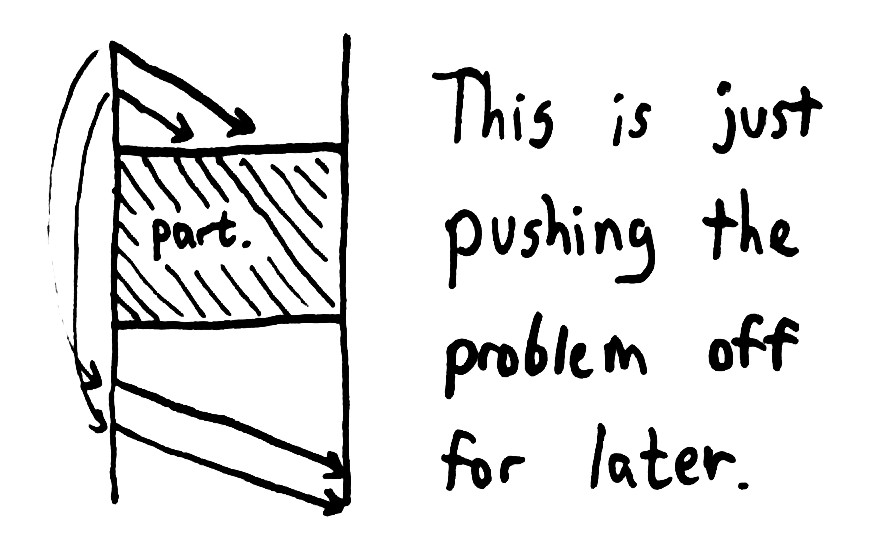 part.
This is just
pushing the
problem off
for later.